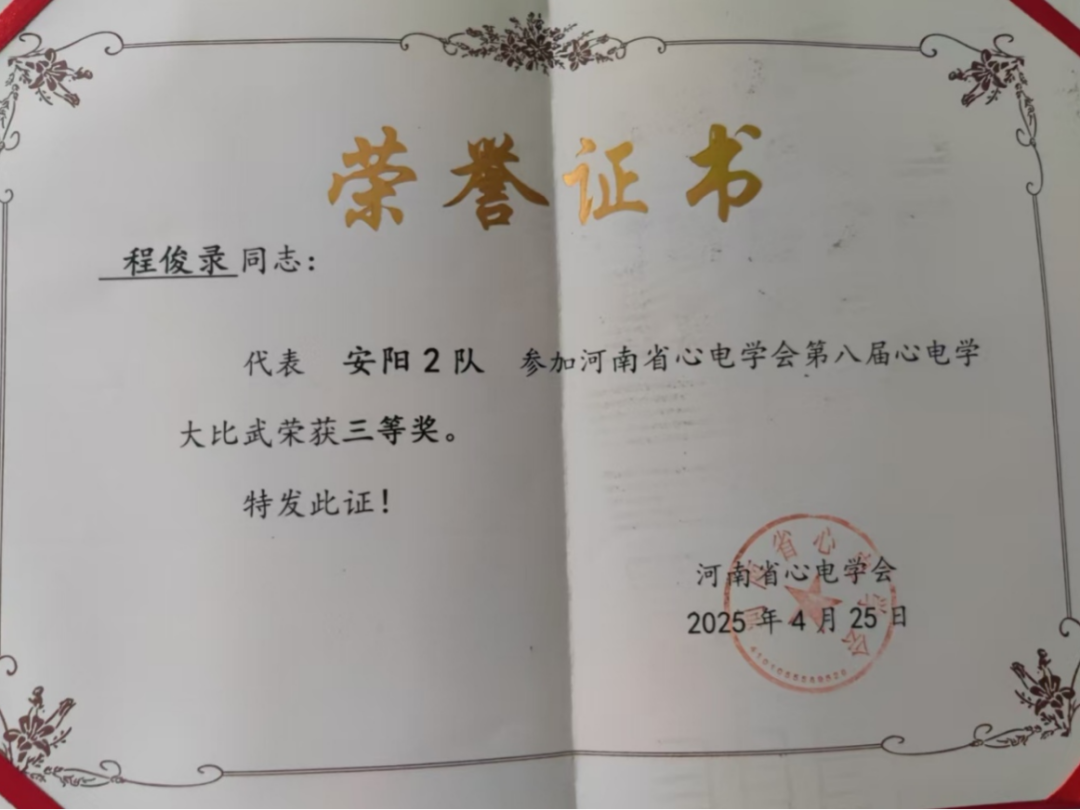 荣誉证书
程俊录同志：
代表 安阳2队 参加河南省心电学会第八届心电学
大比武荣获三等奖。
特发此证！
河南省心电学会
2025年4月25日